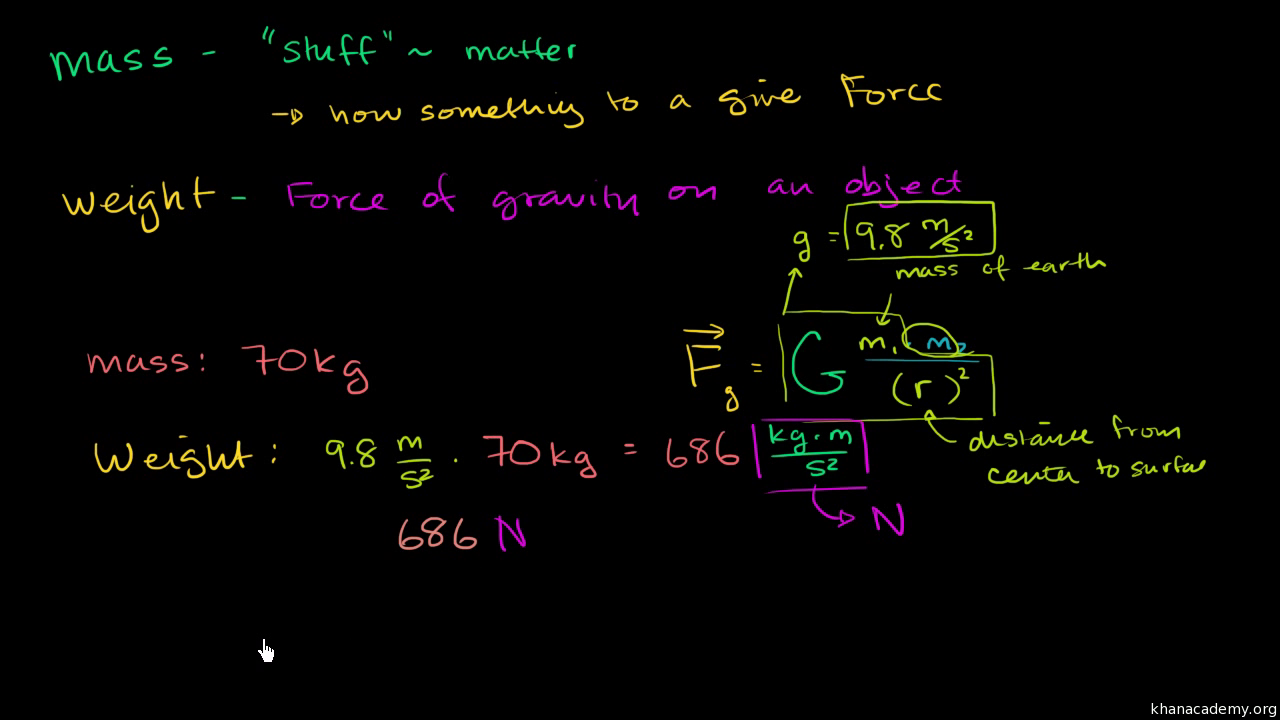 mass - "stuff" ~ matter
→ how something to a give Force
weight - Force of gravity on an object
g = 9.8 m/s²
mass of earth
mass: 70kg
F⃗g = G m₁ · m₂ / (r)²
distance from
center to surface
Weight: 9.8 m/s² · 70kg = 686 kg·m/s²
N
686 N
khanacademy.org